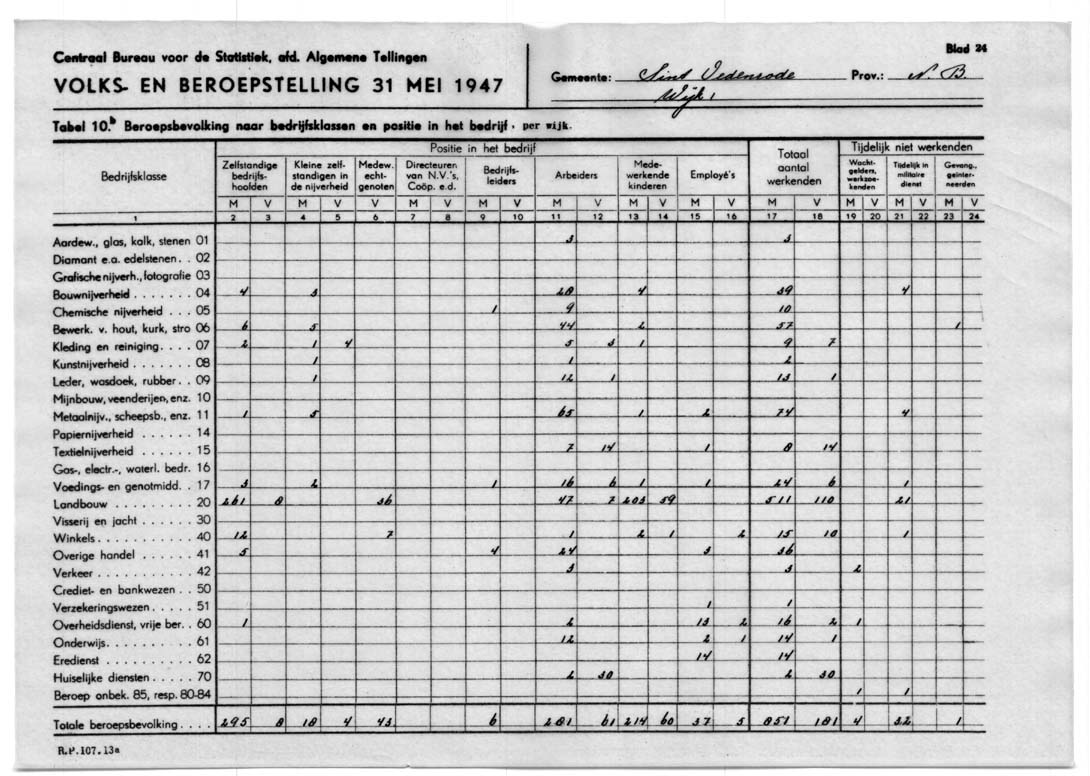 Centraal Bureau voor de Statistiek, afd. Algemene Tellingen
Blad 24
VOLKS- EN BEROEPSTELLING 31 MEI 1947
Gemeente: Sint Oedenrode Prov.: N. B.
Wijk 1
Tabel 10.b Beroepsbevolking naar bedrijfsklassen en positie in het bedrijf, per wijk.
Bedrijfsklasse Positie in het bedrijf Totaal aantal werkenden Tijdelijk niet werkenden
Zelfstandige bedrijfs-hoofden Kleine zelf-standigen in de nijverheid Medew. echt-genoten Directeuren van N.V.'s, Coöp. e.d. Bedrijfs-leiders Arbeiders Mede-werkende kinderen Employé's Wacht-gelders, werkzoe-kenden Tijdelijk in militaire dienst Gevang., geïnter-neerden
M V M V V M V M V M V M V M V M V M V M V M V
1 2 3 4 5 6 7 8 9 10 11 12 13 14 15 16 17 18 19 20 21 22 23 24
Aardew., glas, kalk, stenen 01 3 3
Diamant e.a. edelstenen. . 02
Grafische nijverh., fotografie 03
Bouwnijverheid . . . . . . . 04 4 3 28 4 39 4
Chemische nijverheid . . . 05 1 9 10
Bewerk. v. hout, kurk, stro 06 6 5 44 2 57 1
Kleding en reiniging. . . . 07 2 1 4 5 3 1 9 7
Kunstnijverheid . . . . . . 08 1 1 2
Leder, wasdoek, rubber. . 09 1 12 1 13 1
Mijnbouw, veenderijen, enz. 10
Metaalnijv., scheepsb., enz. 11 1 5 65 1 2 74 4
Papiernijverheid . . . . . . 14
Textielnijverheid . . . . . . 15 7 14 1 8 14
Gas-, electr.-, waterl. bedr. 16
Voedings- en genotmidd. . 17 3 2 1 16 6 1 1 24 6 1
Landbouw . . . . . . . . . 20 261 8 36 47 7 203 59 511 110 21
Visserij en jacht . . . . . . 30
Winkels . . . . . . . . . . 40 12 7 1 2 1 2 15 10 1
Overige handel . . . . . . 41 5 4 24 3 36
Verkeer . . . . . . . . . . 42 3 3 2
Crediet- en bankwezen . . 50
Verzekeringswezen . . . . . 51 1 1
Overheidsdienst, vrije ber. . 60 1 2 13 2 16 2 1
Onderwijs. . . . . . . . . . 61 12 2 1 14 1
Eredienst . . . . . . . . . 62 14 14
Huiselijke diensten . . . . . 70 2 30 2 30
Beroep onbek. 85, resp. 80-84 1 1
Totale beroepsbevolking . . . . 295 8 18 4 43 6 281 61 214 60 37 5 851 181 4 32 1
R.P.107.13a